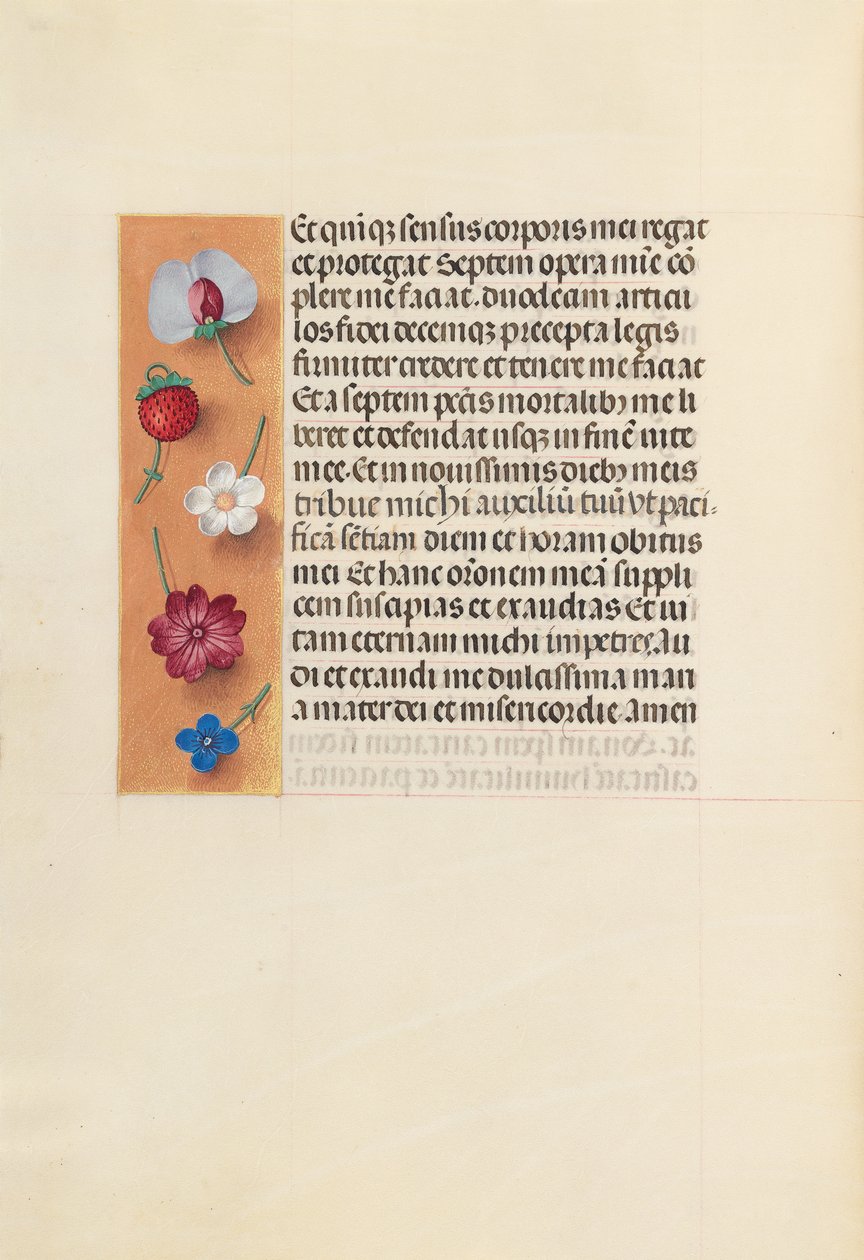 Et quiqꝫ sensus corporis mei regat
et protegat Septem opera mīe cō
plere me faciat. duodecim articu
los fidei decemqꝫ precepta legis
firmiter credere et tenere me faciat
Et a septem pctīs mortalibꝫ me li
beret et defendat usqꝫ in finē uite
mee. Et in nouissimis diebꝫ meis
tribue michi auxiliū tuū vt paci=
ficā sētiam diem et horam obitus
mei Et hanc orōnem meā suppli
cem suscipias et exaudias Et ui
tam eternam michi impetres. Au
di et exaudi me dulcissima mari
a mater dei et misericordie. Amen